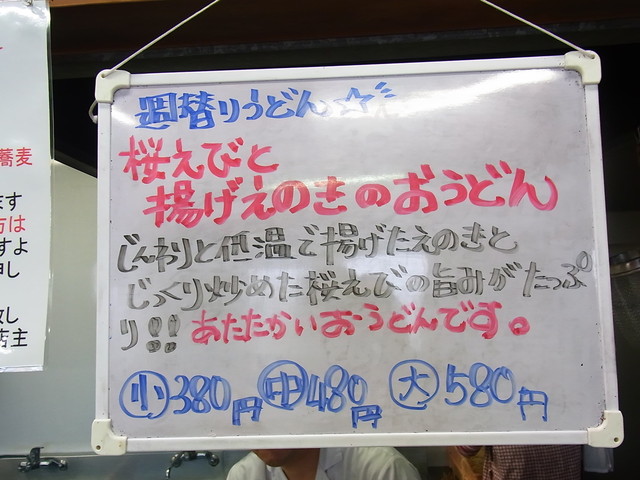 週替りうどん☆
桜えびと
揚げえのきのおうどん
じんわりと低温で揚げたえのきと
じっくり炒めた桜えびの旨みがたっぷ
り!! あたたかいおうどんです。
小380円 中480円 大580円
蕎麦
ます
方は
すよ
申し
致し
店主